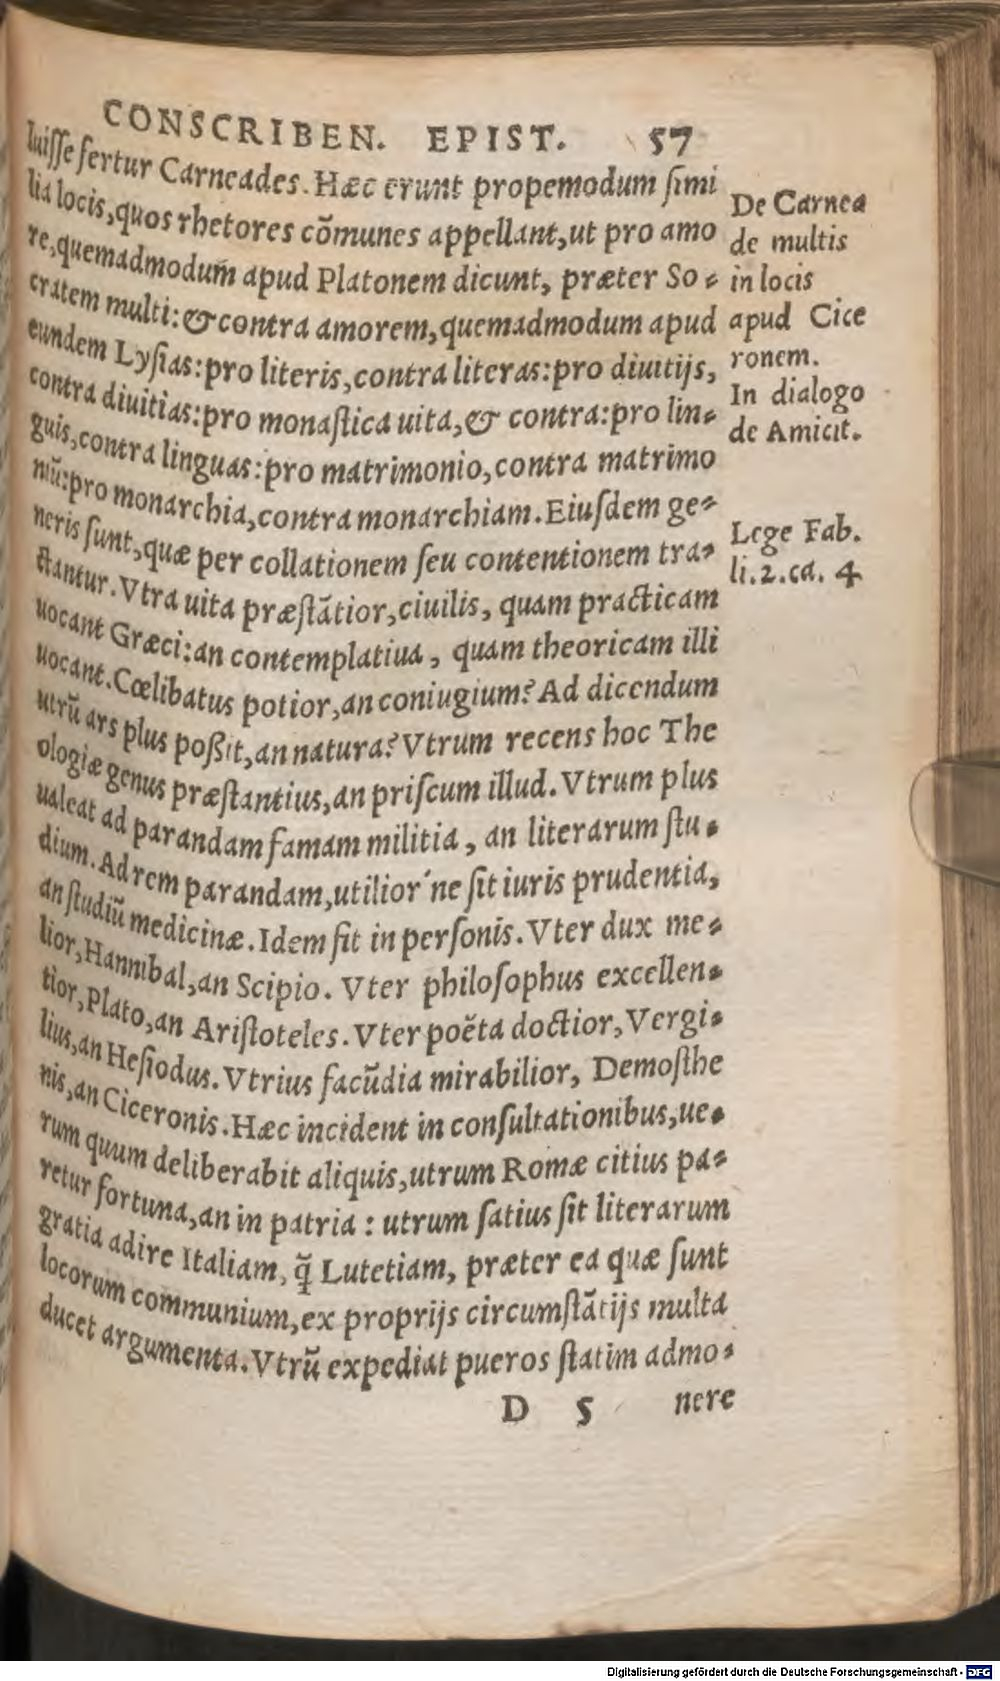 CONSCRIBEN. EPIST. 57
luiſſe fertur Carneades. Hæc erunt propemodum ſimi
lia locis, quos rhetores cõmunes appellant, ut pro amo
re, quemadmodum apud Platonem dicunt, præter So-
cratem multi: & contra amorem, quemadmodum apud
eundem Lyſias: pro literis, contra literas: pro diuitijs,
contra diuitias: pro monaſtica uita, & contra: pro lin-
guis, contra linguas: pro matrimonio, contra matrimo
niũ: pro monarchia, contra monarchiam. Eiuſdem ge-
neris ſunt, quæ per collationem ſeu contentionem tra-
ctantur. Vtra uita præſtãtior, ciuilis, quam practicam
uocant Græci: an contemplatiua, quam theoricam illi
uocant. Cœlibatus potior, an coniugium? Ad dicendum
utrũ ars plus poßit, an natura? Vtrum recens hoc The
ologiæ genus præſtantius, an priſcum illud. Vtrum plus
ualeat ad parandam famam militia, an literarum ſtu-
dium. Ad rem parandam, utilior´ne ſit iuris prudentia,
an ſtudiũ medicinæ. Idem fit in perſonis. Vter dux me-
lior, Hannibal, an Scipio. Vter philoſophus excellen-
tior, Plato, an Ariſtoteles. Vter poëta doctior, Vergi-
lius, an Heſiodus. Vtrius facũdia mirabilior, Demoſthe
nis, an Ciceronis. Hæc incident in conſultationibus, ue-
rum quum deliberabit aliquis, utrum Romæ citius pa-
retur fortuna, an in patria: utrum ſatius ſit literarum
gratia adire Italiam, q̃ Lutetiam, præter ea quæ ſunt
locorum communium, ex proprijs circumſtãtijs multa
ducet argumenta. Vtrũ expediat pueros ſtatim admo-
D 5 nere
De Carnea
de multis
in locis
apud Cice
ronem.
In dialogo
de Amicit.
Lege Fab.
li. 2. ca. 4
Digitalisierung gefördert durch die Deutsche Forschungsgemeinschaft - DFG